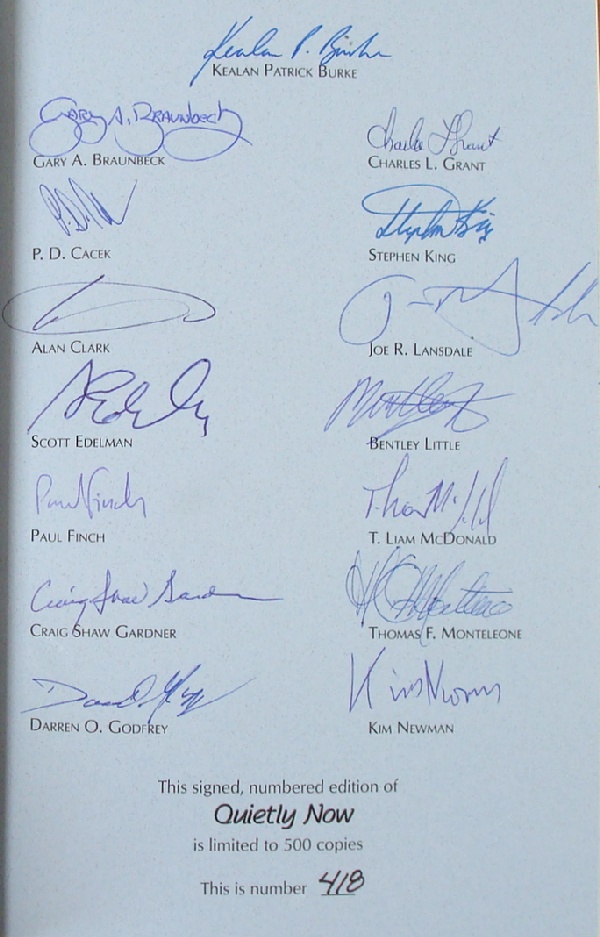 Kealan P. Burke
KEALAN PATRICK BURKE
GARY A. BRAUNBECK
GARY A. BRAUNBECK
Charles L Grant
CHARLES L. GRANT
P. D. CACEK
Stephen King
STEPHEN KING
ALAN CLARK
JOE R. LANSDALE
SCOTT EDELMAN
BENTLEY LITTLE
Paul Finch
PAUL FINCH
T. LIAM MCDONALD
Craig Shaw Gardner
CRAIG SHAW GARDNER
THOMAS F. MONTELEONE
DARREN O. GODFREY
Kim Newman
KIM NEWMAN
This signed, numbered edition of
Quietly Now
is limited to 500 copies
This is number 418